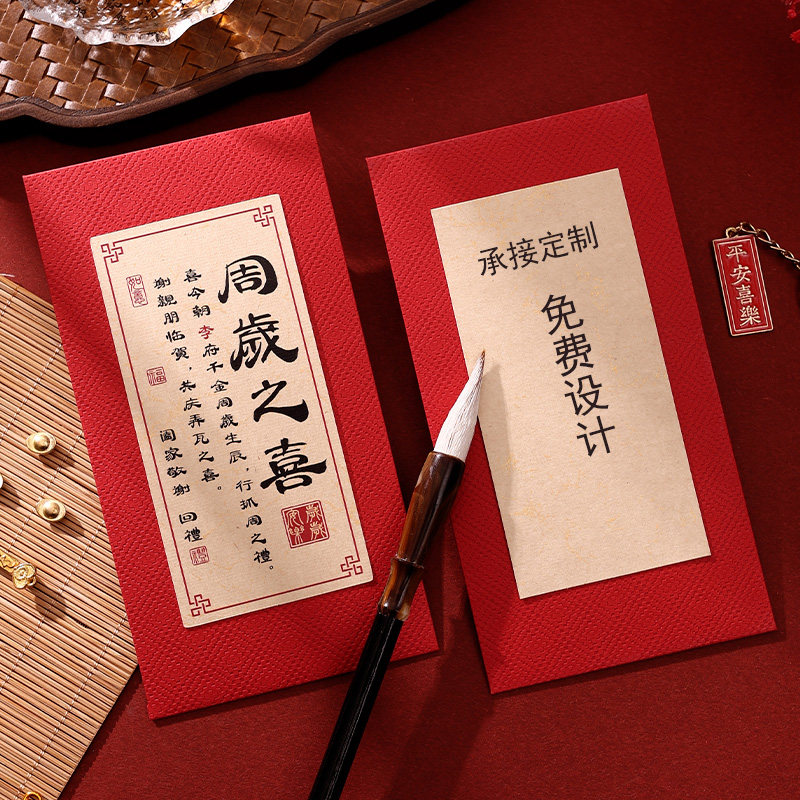 周歲之喜
喜今朝李府千金周歲生辰，行抓周之禮。
謝親朋临賀，共庆弄瓦之喜。
阖家敬谢 回禮
如意
福
歲歲安樂
禮
承接定制
免费设计
平安喜樂